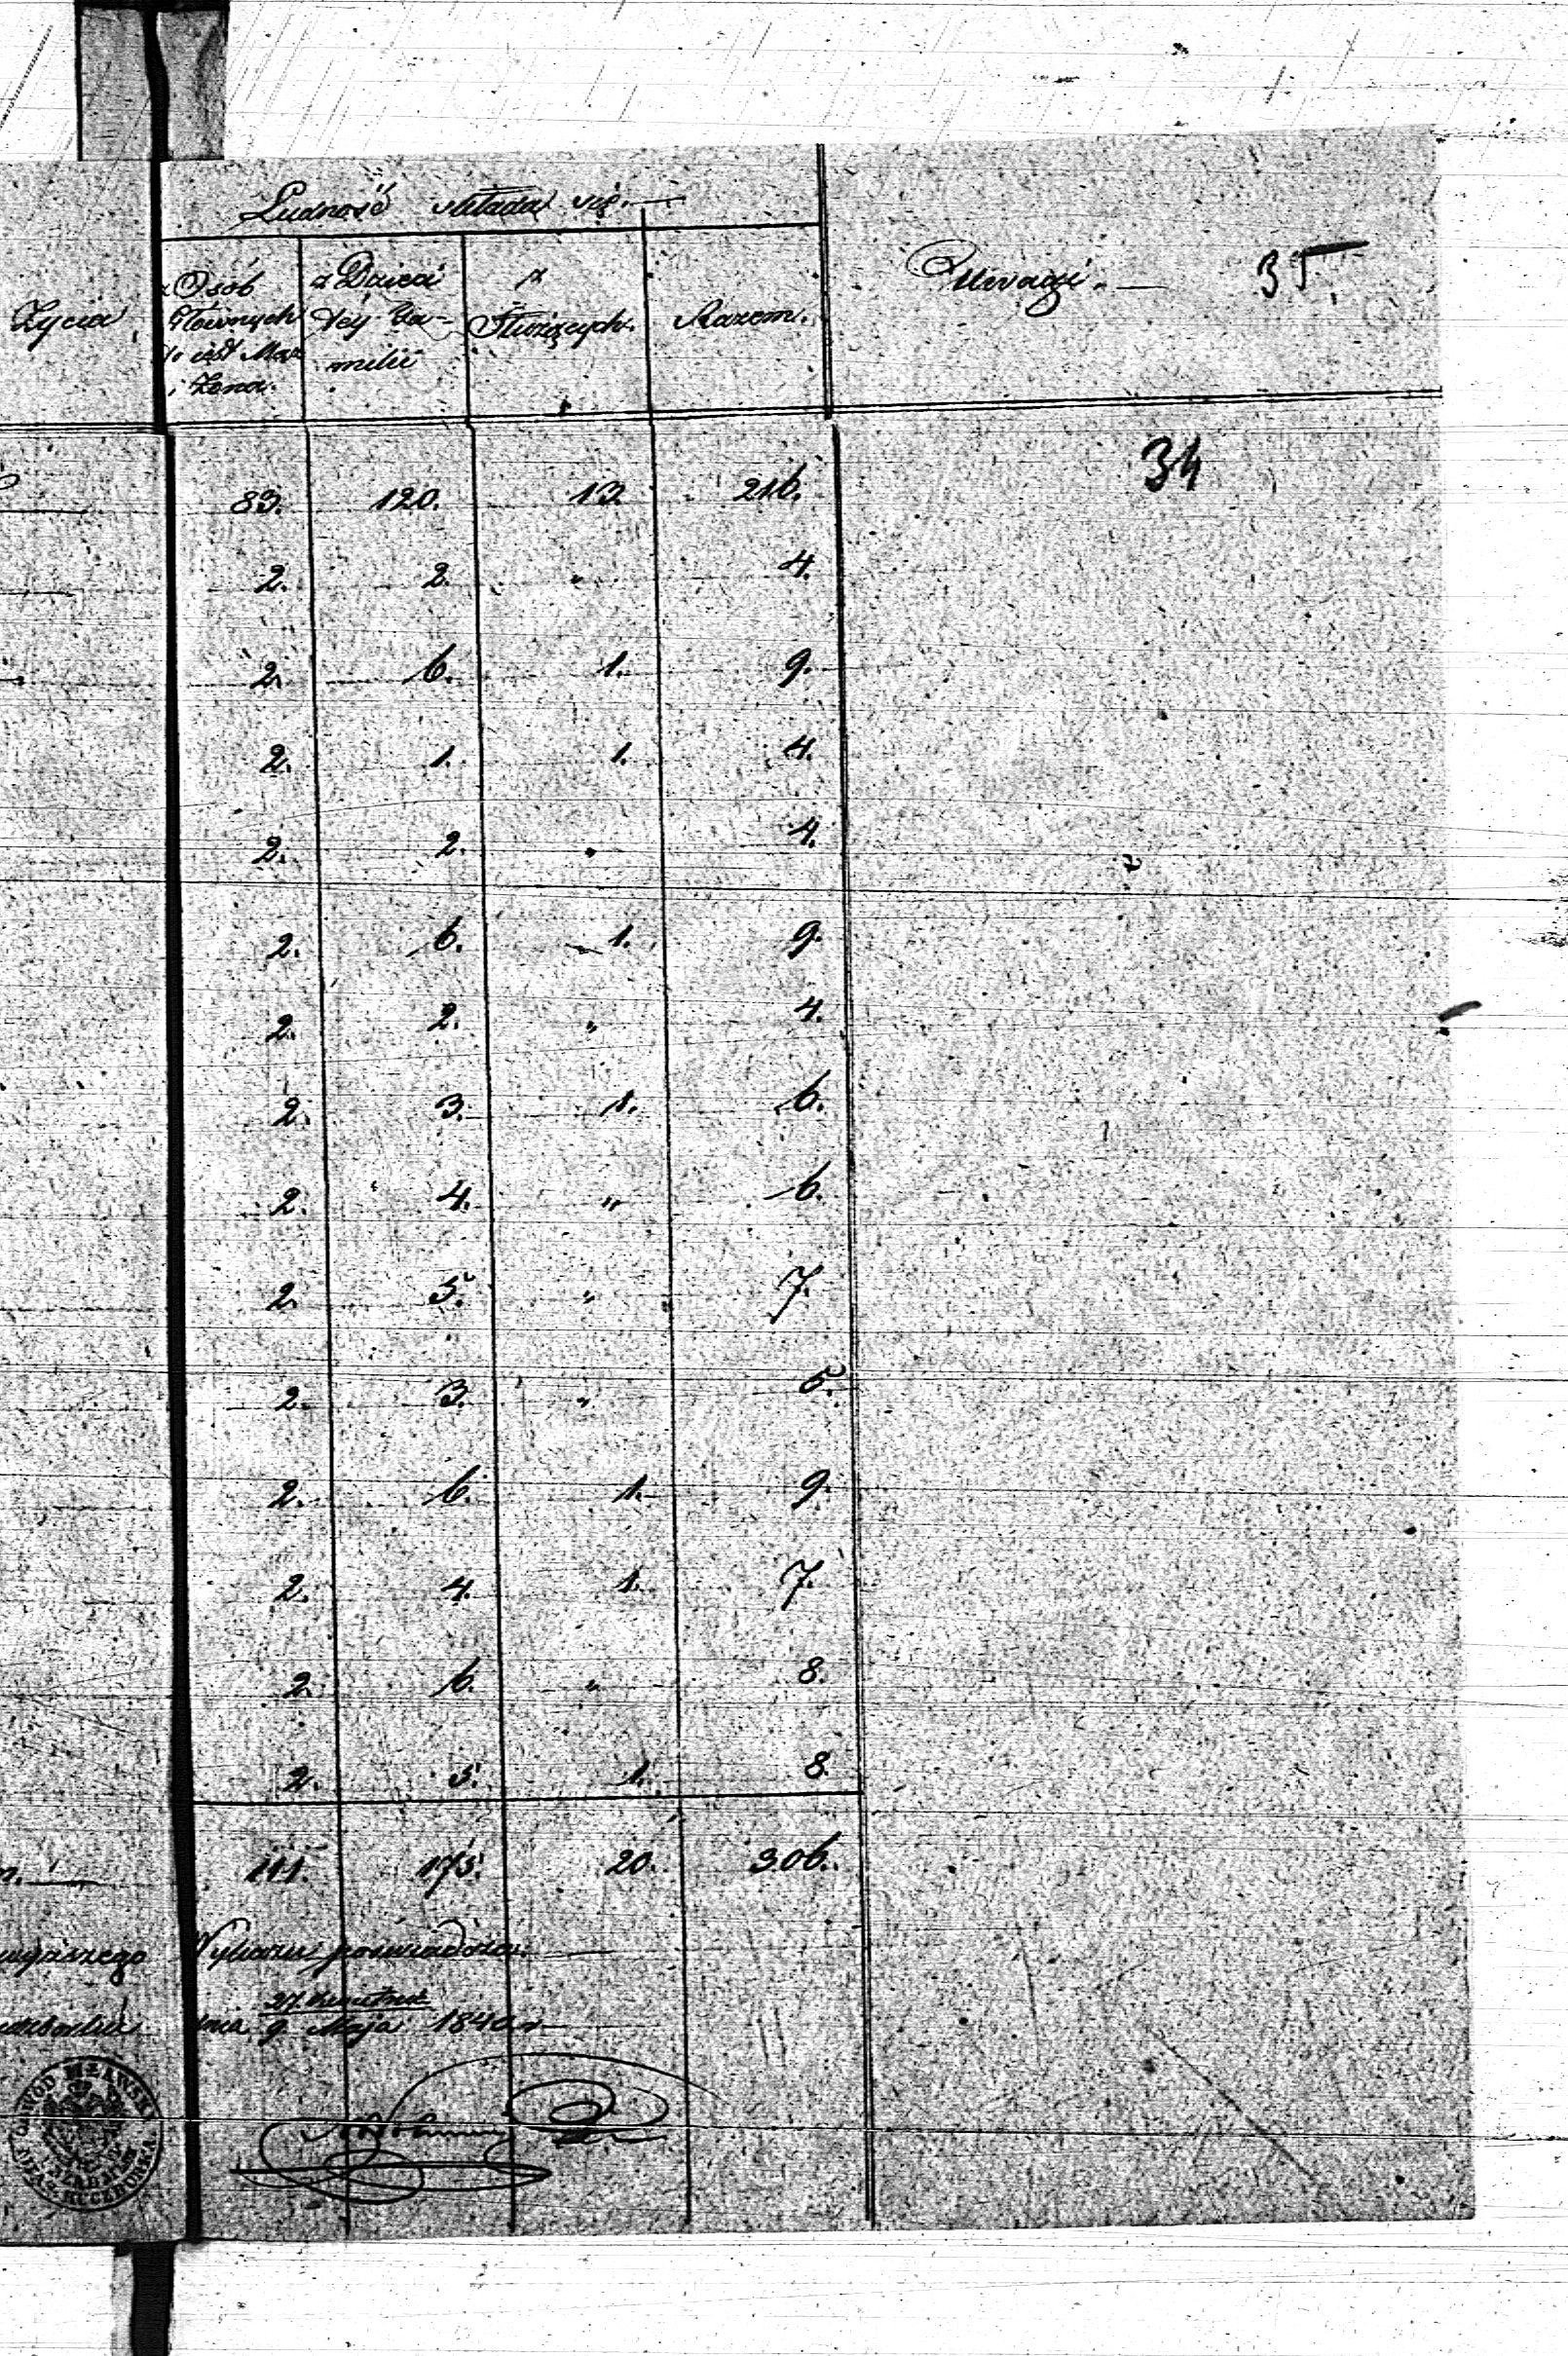 Ludność składa się.
Życia
z Osób
Głównych
to iest Mąż
i Żona.
z Dzieci
téy Fa-
milii
z
Służących.
Razem.
Uwagi.
35.
34
83. 120. 13. 216.
2. 2. " 4.
2. 6. 1. 9.
2. 1. 1. 4.
2. 2. " 4.
2. 6. 1. 9.
2. 2. " 4.
2. 3. 1. 6.
2. 4. " 6.
2. 5. " 7.
2. 3. " 5.
2. 6. 1. 9.
2. 4. 1. 7.
2. 6. " 8.
2. 5. 1. 8.
111. 175. 20. 306.
poświadcza.
27. Kwietnia
dnia 9 Maja 1840 r
OBWÓD MŁAWSKI